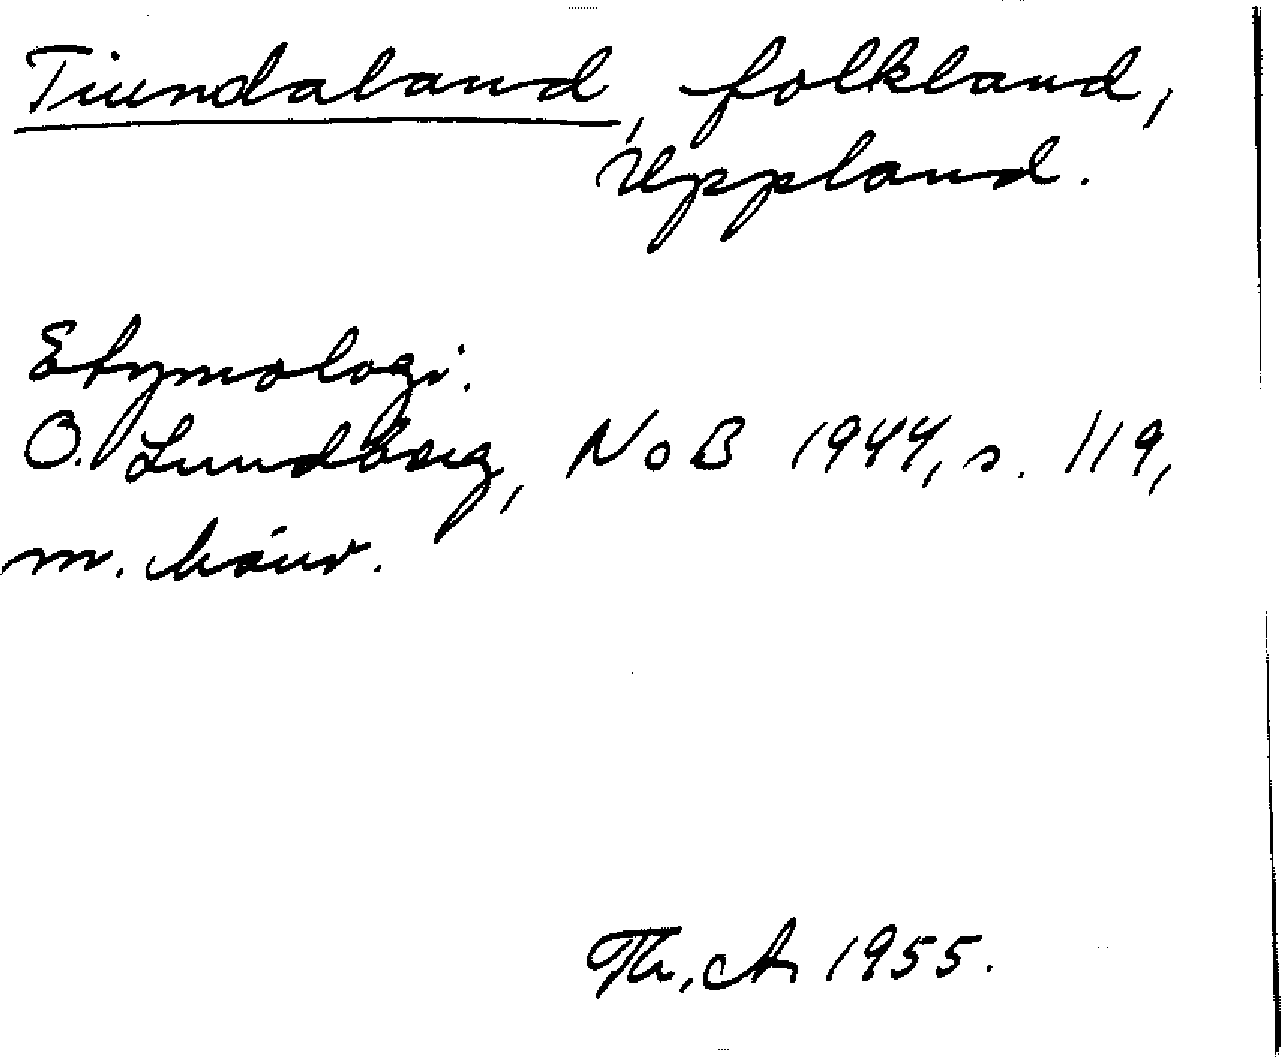 Tiundaland, folkland,
Uppland.
Etymologi.
O. Lundberg, NoB 1944, s. 119,
m. hänv.
Th. A. 1955.